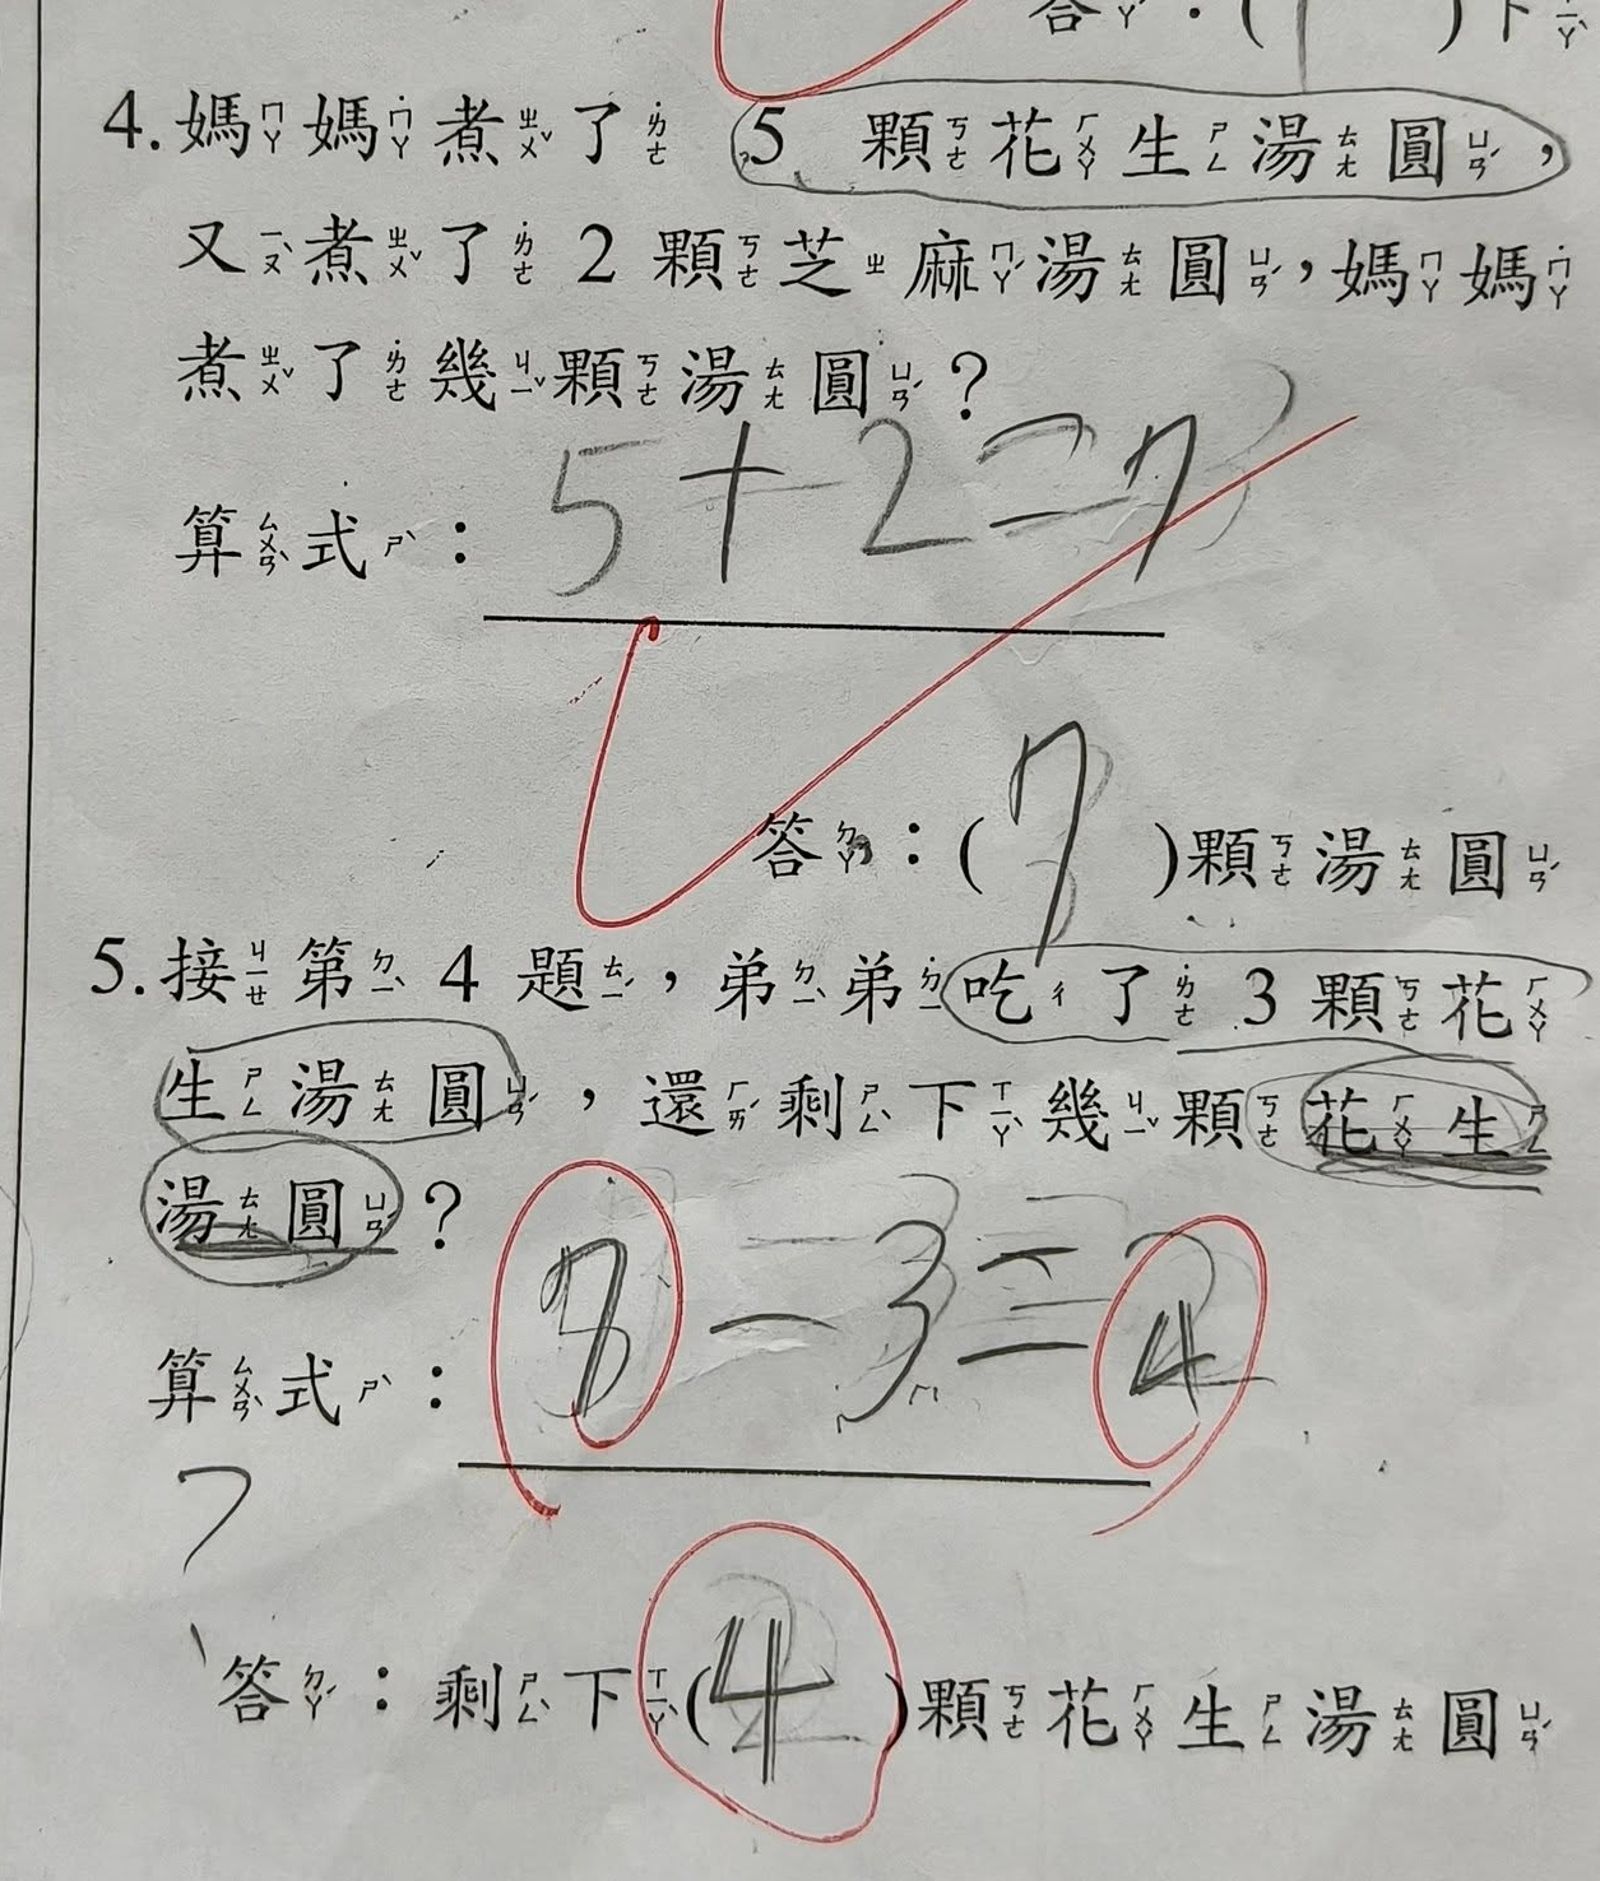 答ㄚˊ：( )下ㄒㄧㄚˋ
4.媽ㄇㄚ媽˙ㄇㄚ煮ㄓㄨˇ了˙ㄌㄜ 5 顆ㄎㄜ花ㄏㄨㄚ生ㄕㄥ湯ㄊㄤ圓ㄩㄢˊ，
又ㄧㄡˋ煮ㄓㄨˇ了˙ㄌㄜ 2 顆ㄎㄜ芝ㄓ麻ㄇㄚˊ湯ㄊㄤ圓ㄩㄢˊ，媽ㄇㄚ媽˙ㄇㄚ
煮ㄓㄨˇ了˙ㄌㄜ幾ㄐㄧˇ顆ㄎㄜ湯ㄊㄤ圓ㄩㄢˊ？
算ㄙㄨㄢˋ式ㄕˋ： 5+2=7
答ㄉㄚˊ：( 7 )顆ㄎㄜ湯ㄊㄤ圓ㄩㄢˊ
5.接ㄐㄧㄝ第ㄉㄧˋ 4 題ㄊㄧˊ，弟ㄉㄧˋ弟˙ㄉㄧ吃ㄔ了˙ㄌㄜ 3 顆ㄎㄜ花ㄏㄨㄚ
生ㄕㄥ湯ㄊㄤ圓ㄩㄢˊ，還ㄏㄞˊ剩ㄕㄥˋ下ㄒㄧㄚˋ幾ㄐㄧˇ顆ㄎㄜ花ㄏㄨㄚ生ㄕㄥ
湯ㄊㄤ圓ㄩㄢˊ？
算ㄙㄨㄢˋ式ㄕˋ： 7-3=4
7
答ㄉㄚˊ：剩ㄕㄥˋ下ㄒㄧㄚˋ( 4 )顆ㄎㄜ花ㄏㄨㄚ生ㄕㄥ湯ㄊㄤ圓ㄩㄢˊ